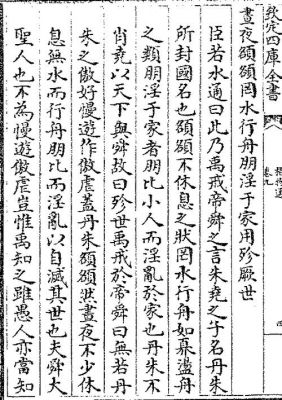 欽定四庫全書
卷九
晝夜頟頟罔水行舟朋淫于家用殄厥世
臣若水通曰此乃禹戒帝舜之言朱堯之子名丹朱
所封國名也頟頟不休息之狀罔水行舟如奡盪舟
之類朋淫于家者朋比小人而淫亂於家也丹朱不
肖堯以天下與舜故曰殄世禹戒於帝舜曰無若丹
朱之傲好慢遊作傲虐蓋丹朱頟頟然晝夜不少休
息無水而行舟朋比而淫亂以自滅其世也夫舜大
聖人也不為慢遊傲虐豈惟禹知之雖愚人亦當知